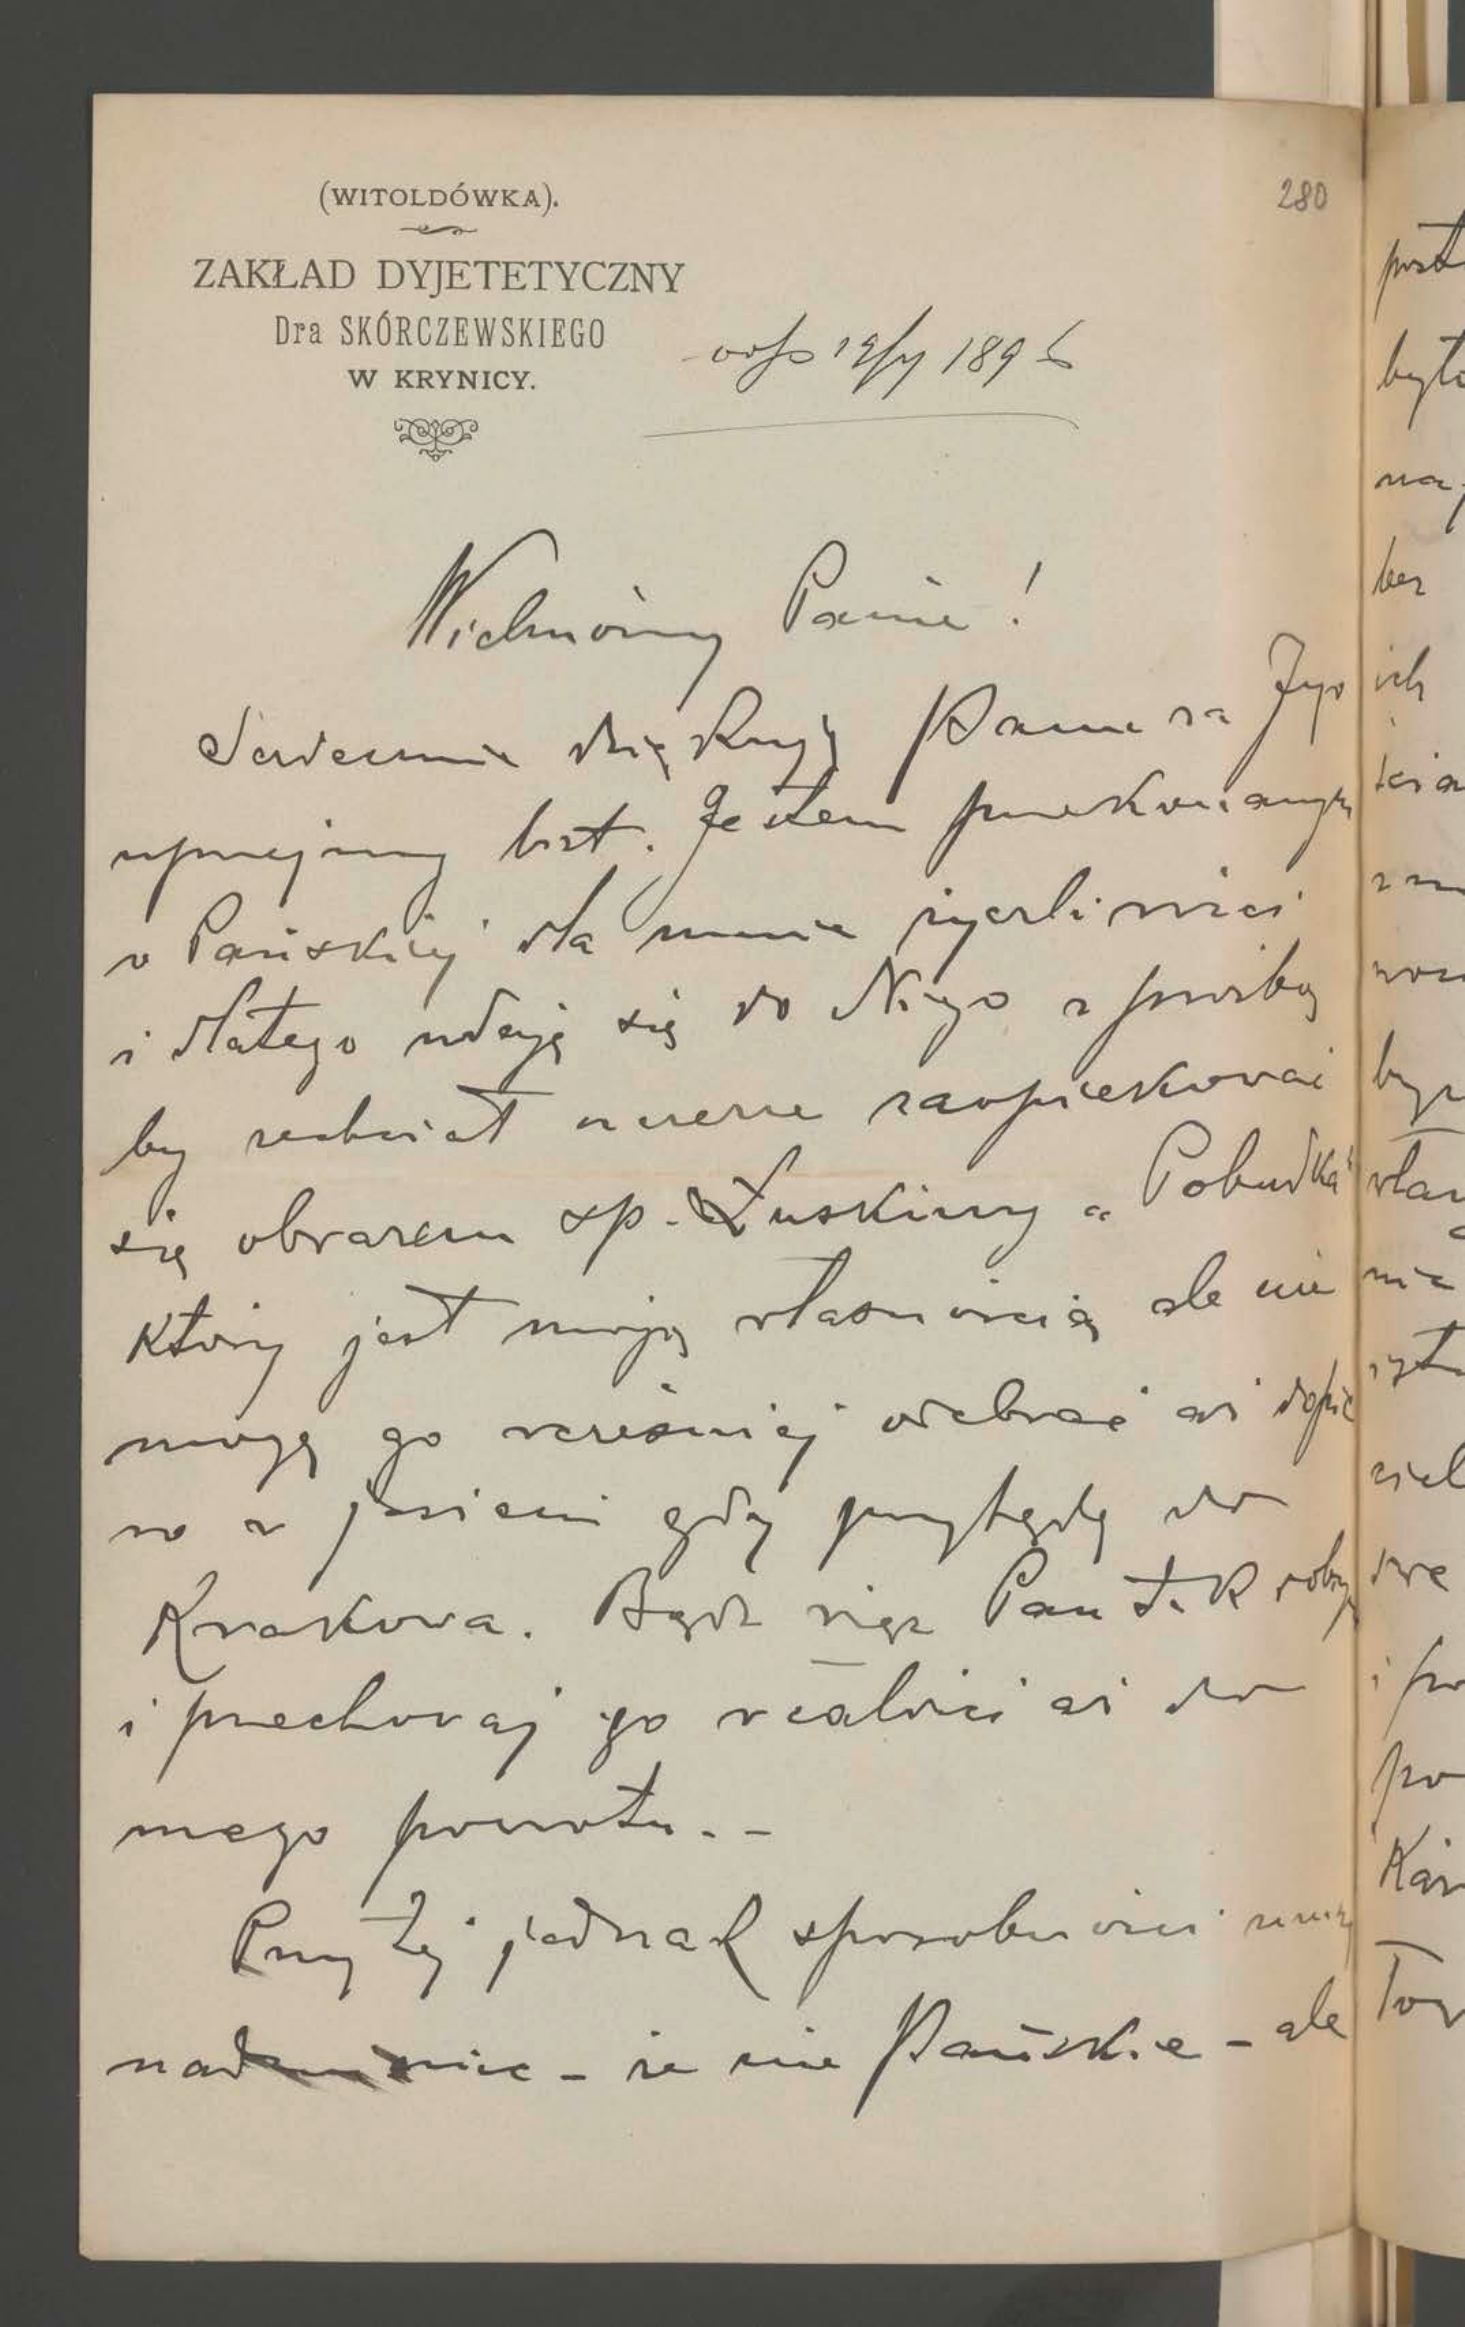 (WITOLDÓWKA).
280
ZAKŁAD DYJETETYCZNY
Dra SKÓRCZEWSKIEGO
W KRYNICY.
odp 12/VI 1895
Wielmożny Panie!
Serdecznie dziękuję Panu za Jego
uprzejmy list. Jestem przekonanym
o Pańskiej dla mnie życzliwości
i dlatego udaję się do Niego z prośbą
by zechciał zaopiekować
się obrazem śp. Łuskiny „Pobudka“
który jest moją własnością ale nie
mogę go wcześniej odebrać aż dopie
ro w jesieni gdy przybędę do
Krakowa. Bądź więc Pan tak dobry
i przechowaj go w całości aż do
mego powrotu. -
Przy tej jednak sposobności
nadmienię - że nie Pańskie - ale
post
było
bez
ich
nie
i po
po